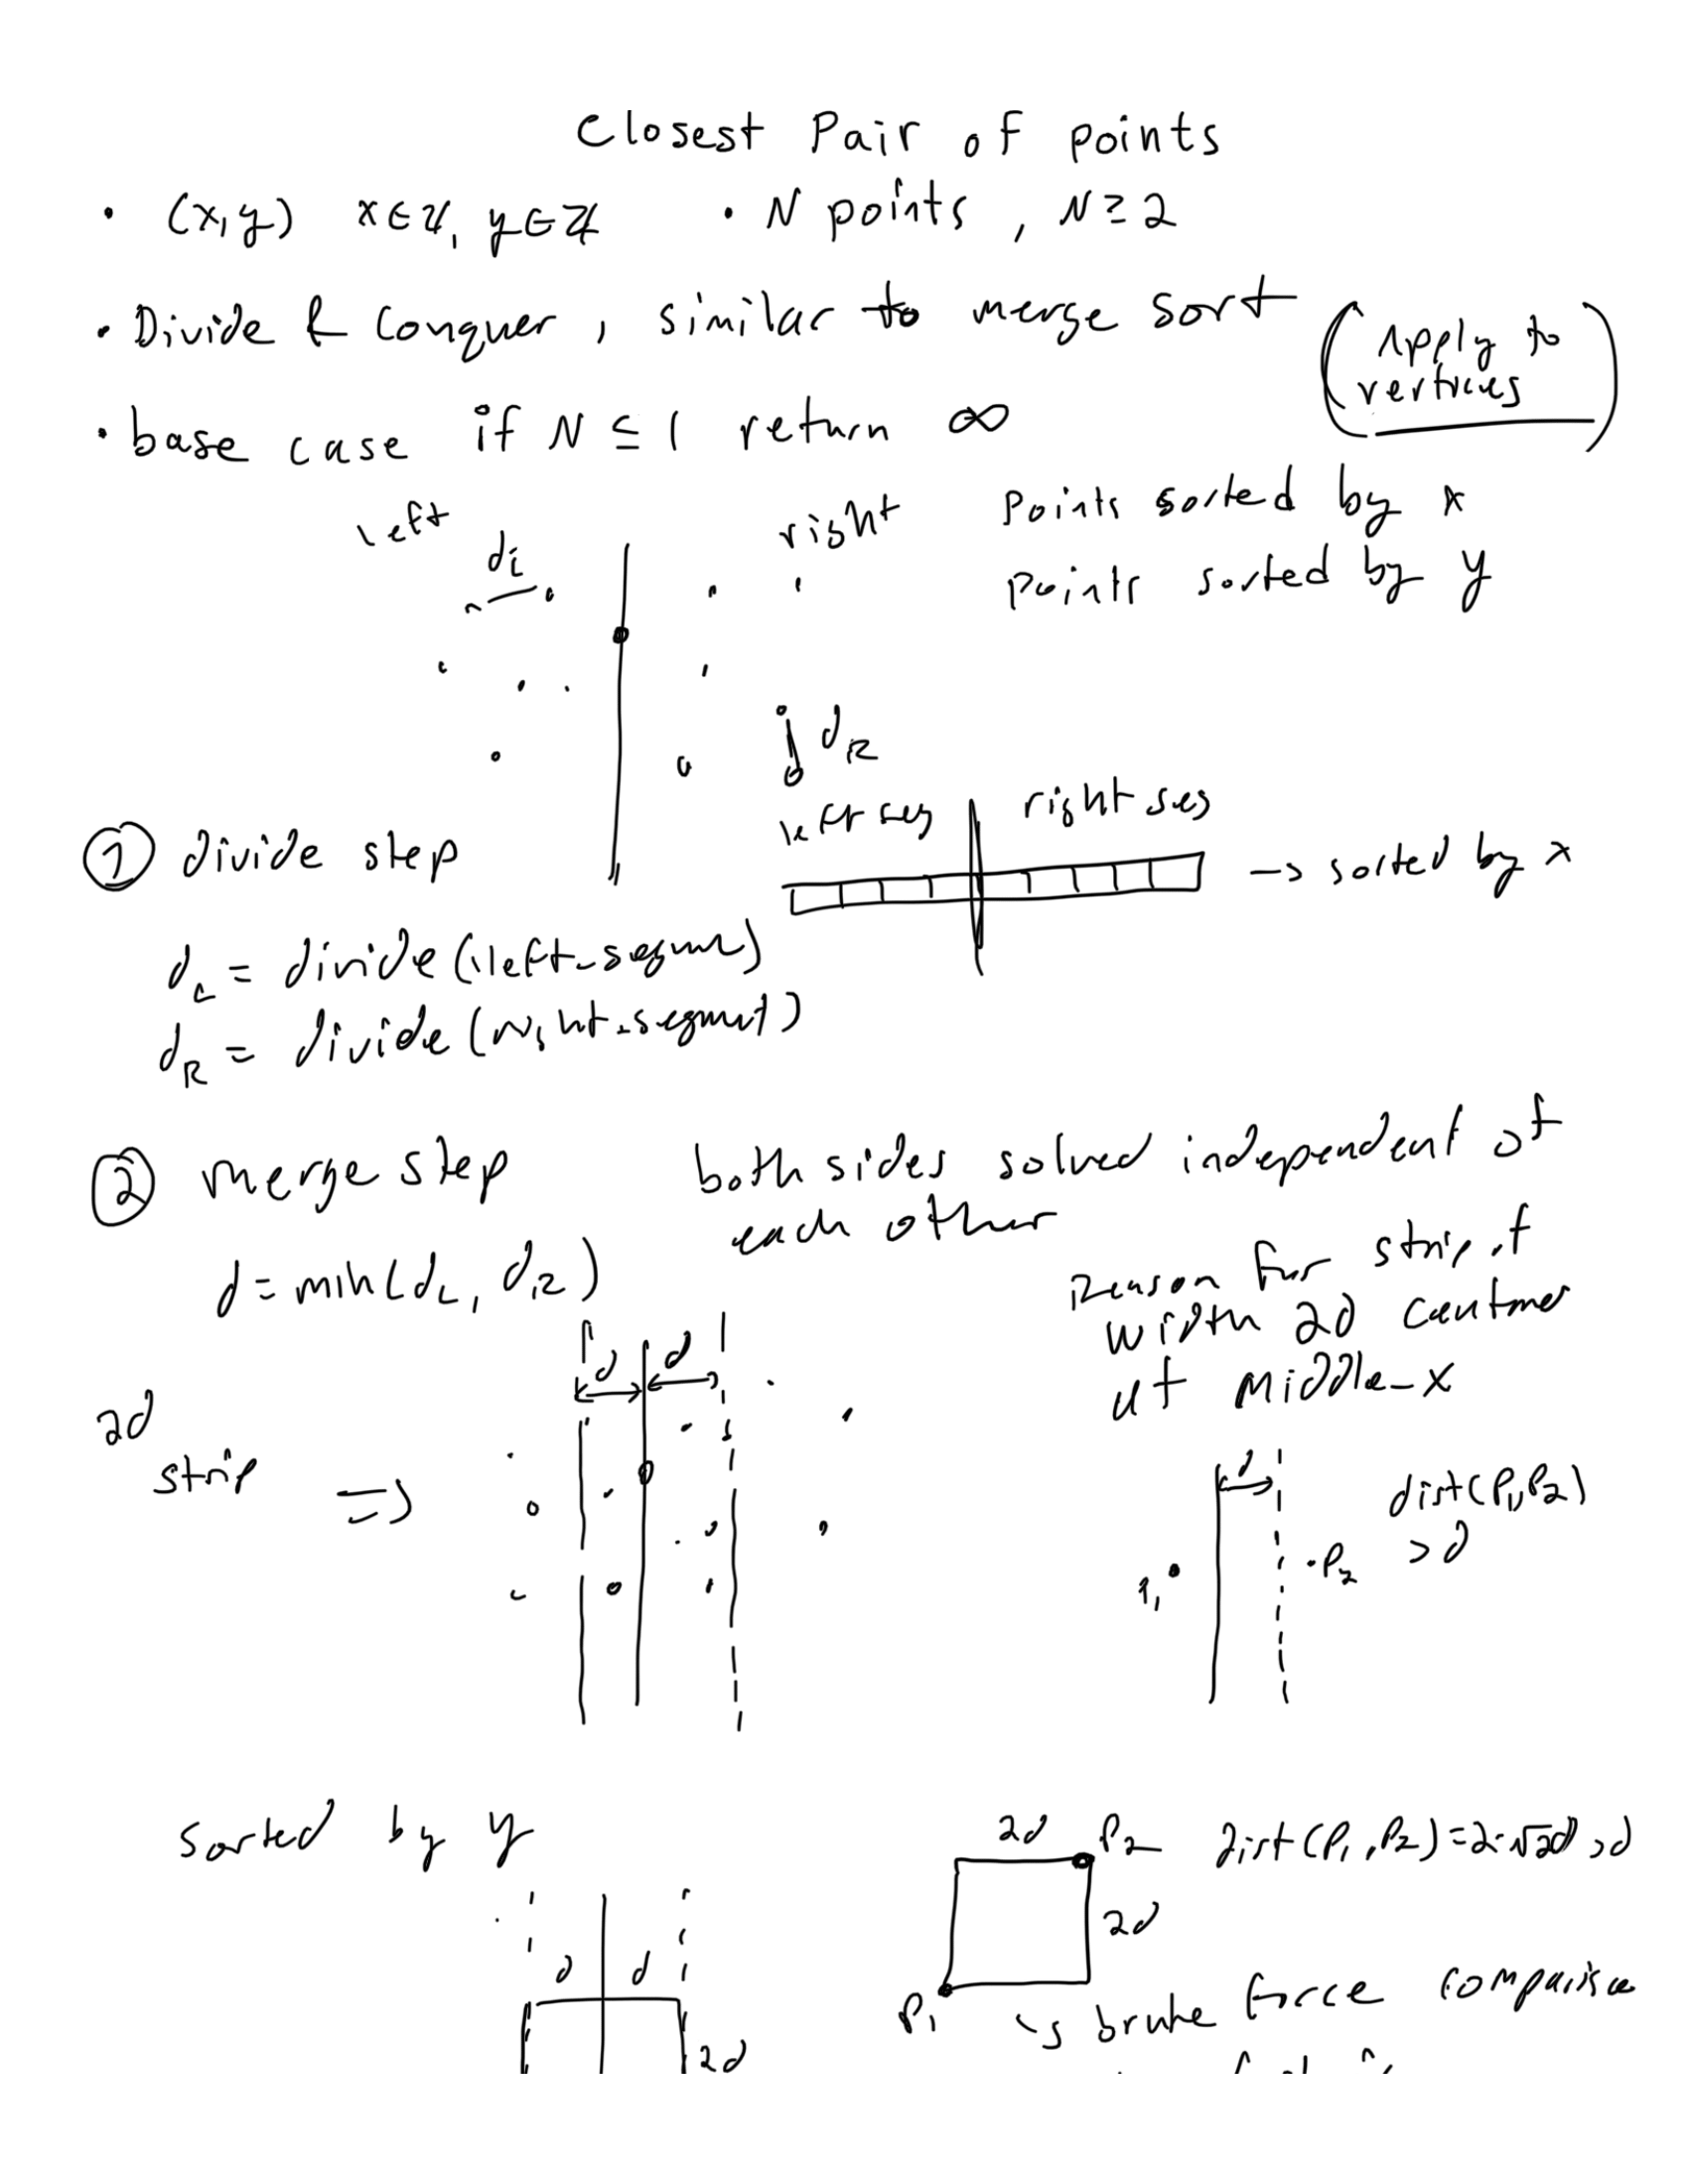 Closest Pair of points
• (x,y) x∈ℤ, y∈ℤ • N points, N≥2
• Divide & Conquer, similar to merge sort
(Apply to
vertices)
• base case if N ≤ 1 return ∞
left right points sorted by x
points sorted by y
d_L
d_R
left seg right seg
① divide step
→ sorted by x
d_L = divide(left_segment)
d_R = divide(right_segment)
② merge step both sides solved independent of
each other
d = min(d_L, d_R)
Reason for strip of
width 2d
at middle_x
d d
2d
strip ⇒
d dist(P₁,P₂)
P₁ • • P₂ > d
sorted by y
2d P₂ dist(P₁,P₂)=2·√2d > d
2d
d d
P₁ → brute force
2d